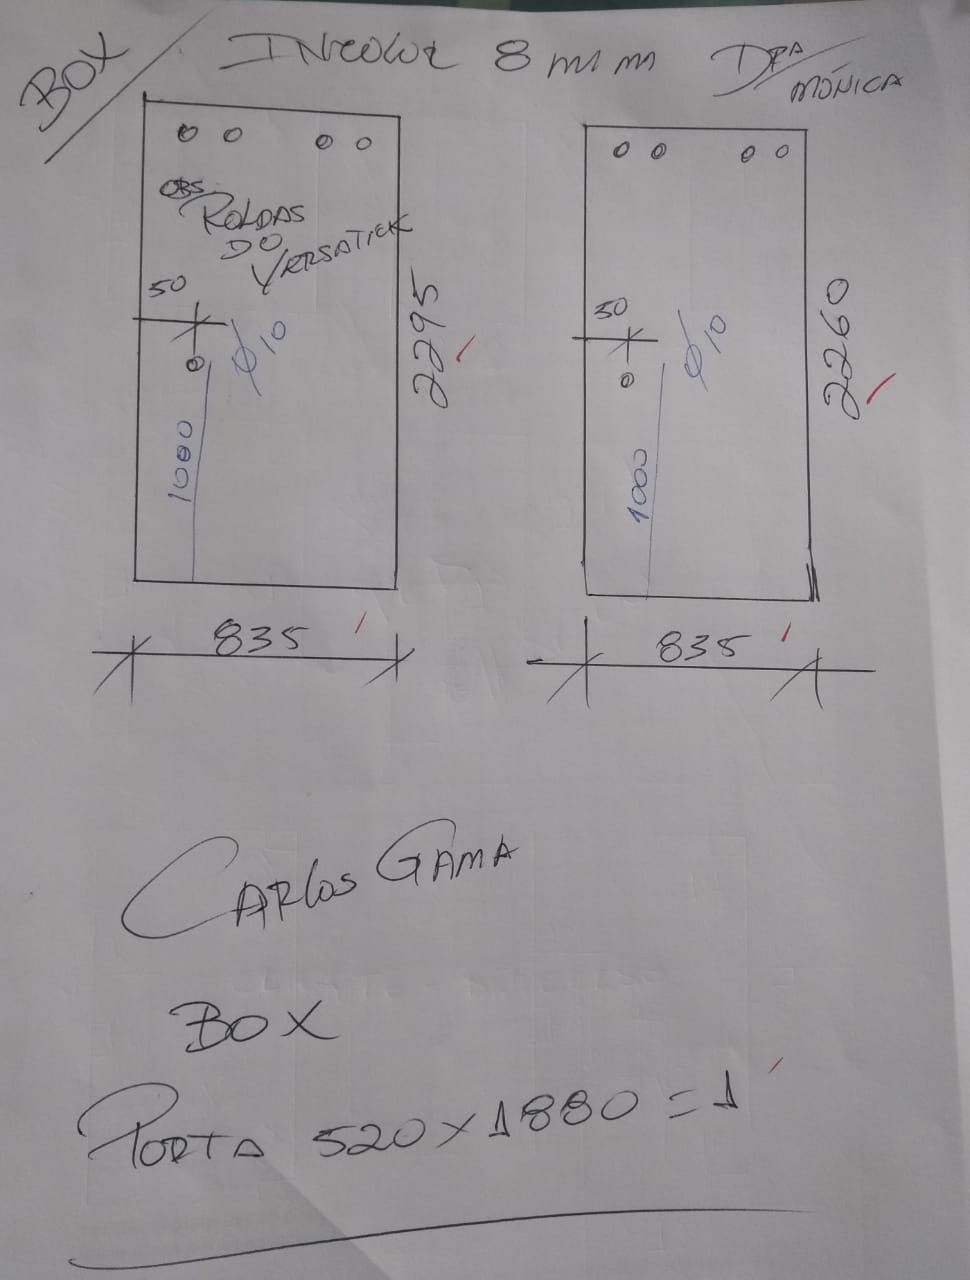 BOX
INcolor 8 mm
DRA
MÔNICA
OBS
ROLDAS
DO
VERSATICK
50
Ø10
1000
2295
835
50
Ø10
1000
2260
835
CARlos GAMA
BOX
PORTA 520 x 1880 = 1